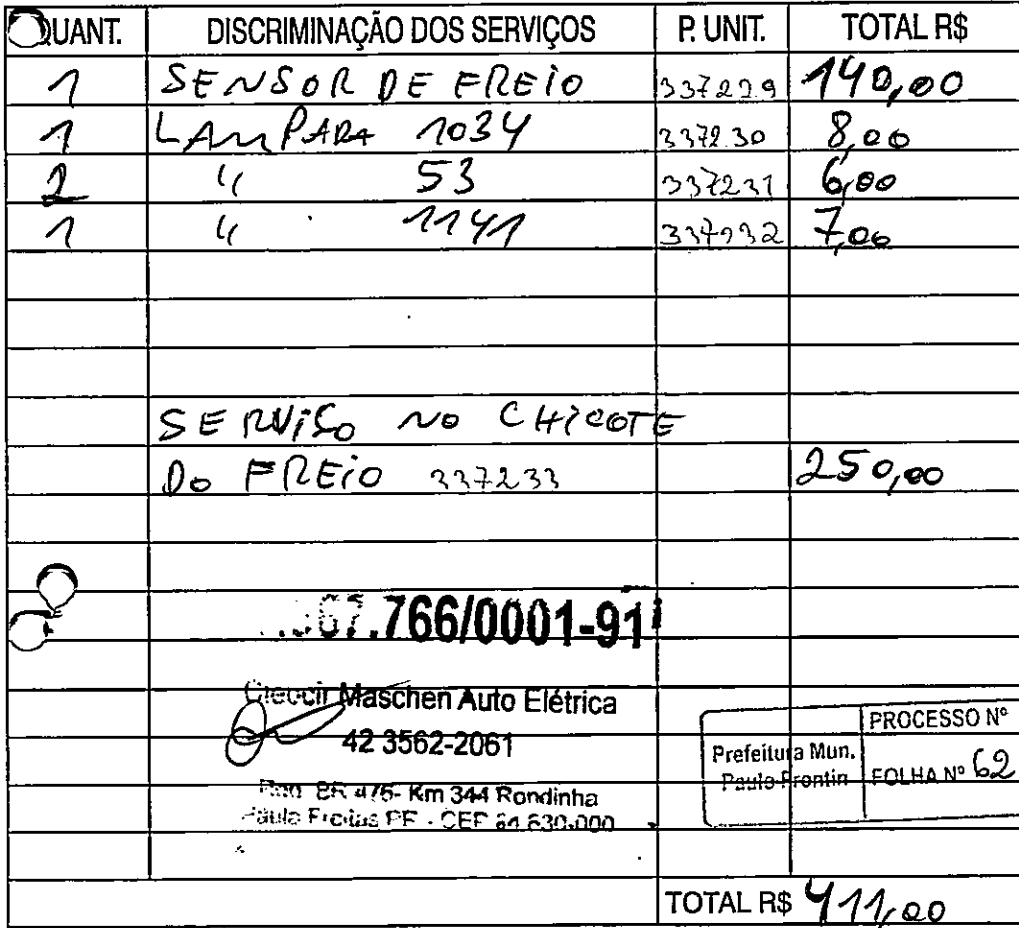 QUANT. DISCRIMINAÇÃO DOS SERVIÇOS P. UNIT. TOTAL R$
1 SENSOR DE FREIO 337229 140,00
1 LAMPADA 1034 337230 8,00
2 " 53 337231 6,00
1 " 1141 337232 7,00
SERVIÇO NO CHICOTE
DO FREIO 337233 250,00
.766/0001-91
Maschen Auto Elétrica
42 3562-2061
Km 344 Rondinha
PROCESSO Nº
Prefeitura Mun.
Paulo Frontin FOLHA Nº 62
TOTAL R$ 411,00